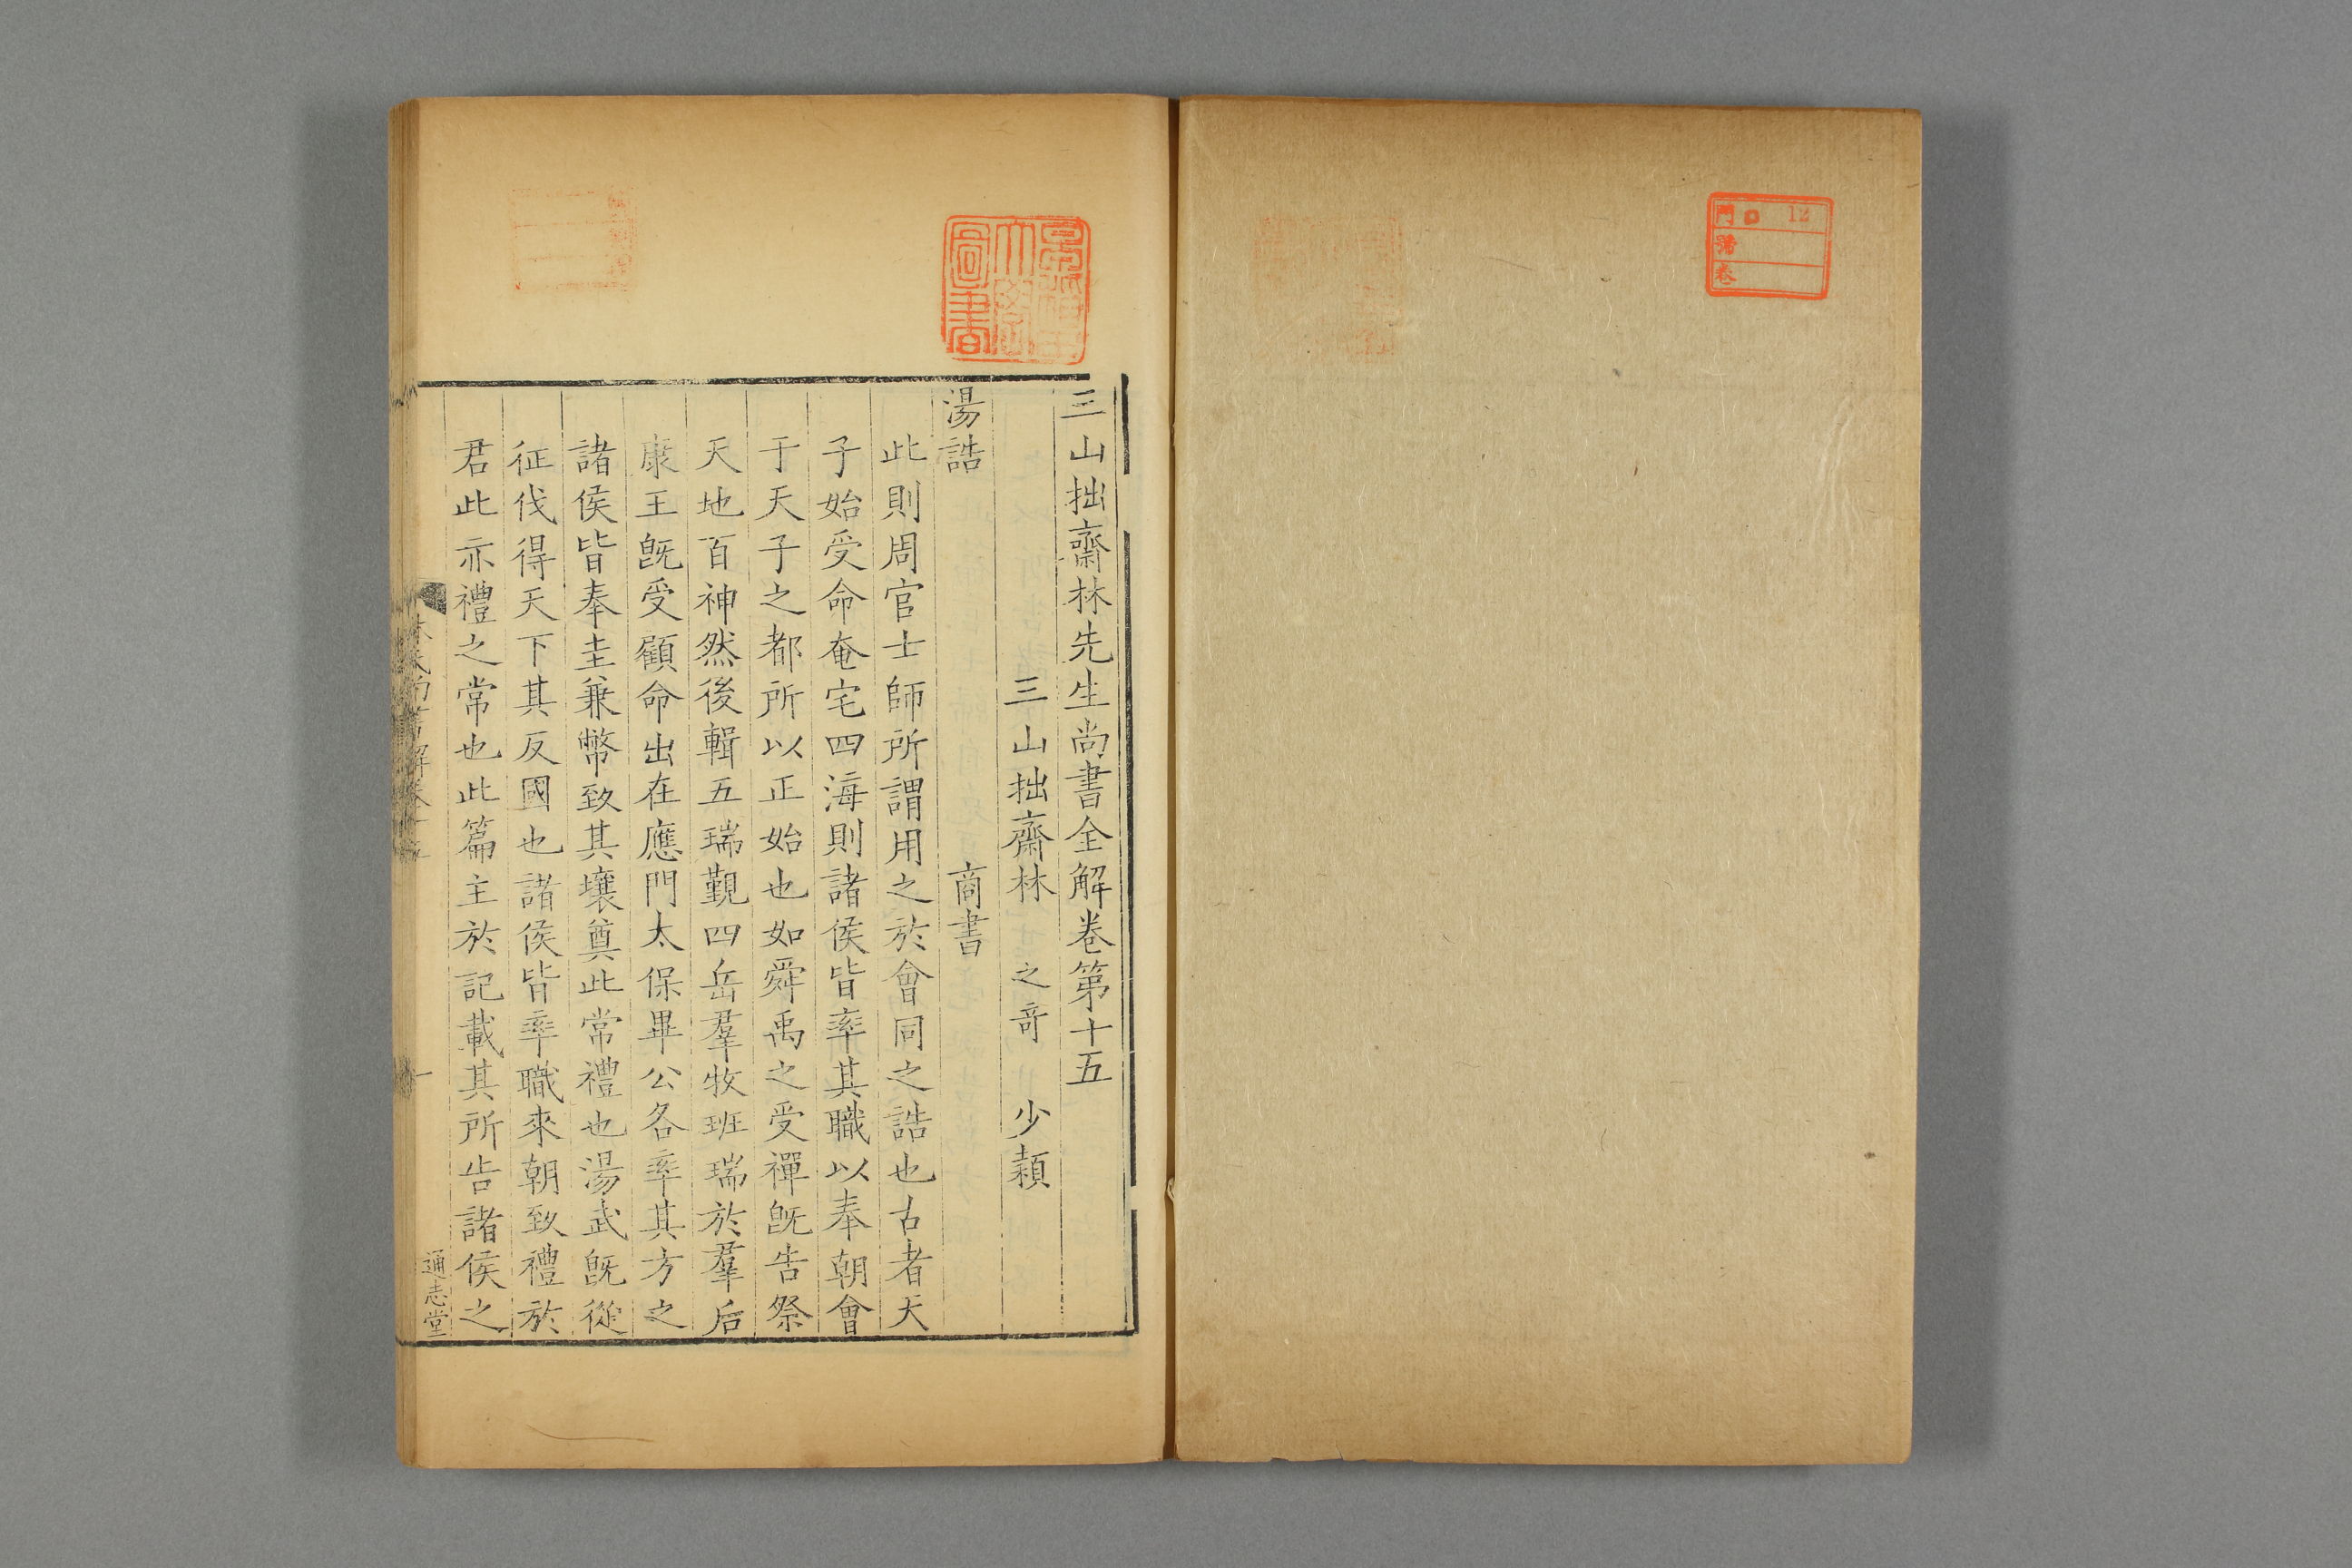 門 口 12
號
卷
圖書
三山拙齋林先生尚書全解卷第十五
三山拙齋林 之奇 少穎
湯誥 商書
此則周官士師所謂用之於會同之誥也古者天
子始受命奄宅四海則諸侯皆率其職以奉朝會
于天子之都所以正始也如舜禹之受禪旣告祭
天地百神然後輯五瑞覲四岳羣牧班瑞於羣后
康王旣受顧命出在應門太保畢公各率其方之
諸侯皆奉圭兼幣致其壤奠此常禮也湯武旣從
征伐得天下其反國也諸侯皆率職來朝致禮於
君此亦禮之常也此篇主於記載其所告諸侯之
林氏尚書解卷十五
一
通志堂